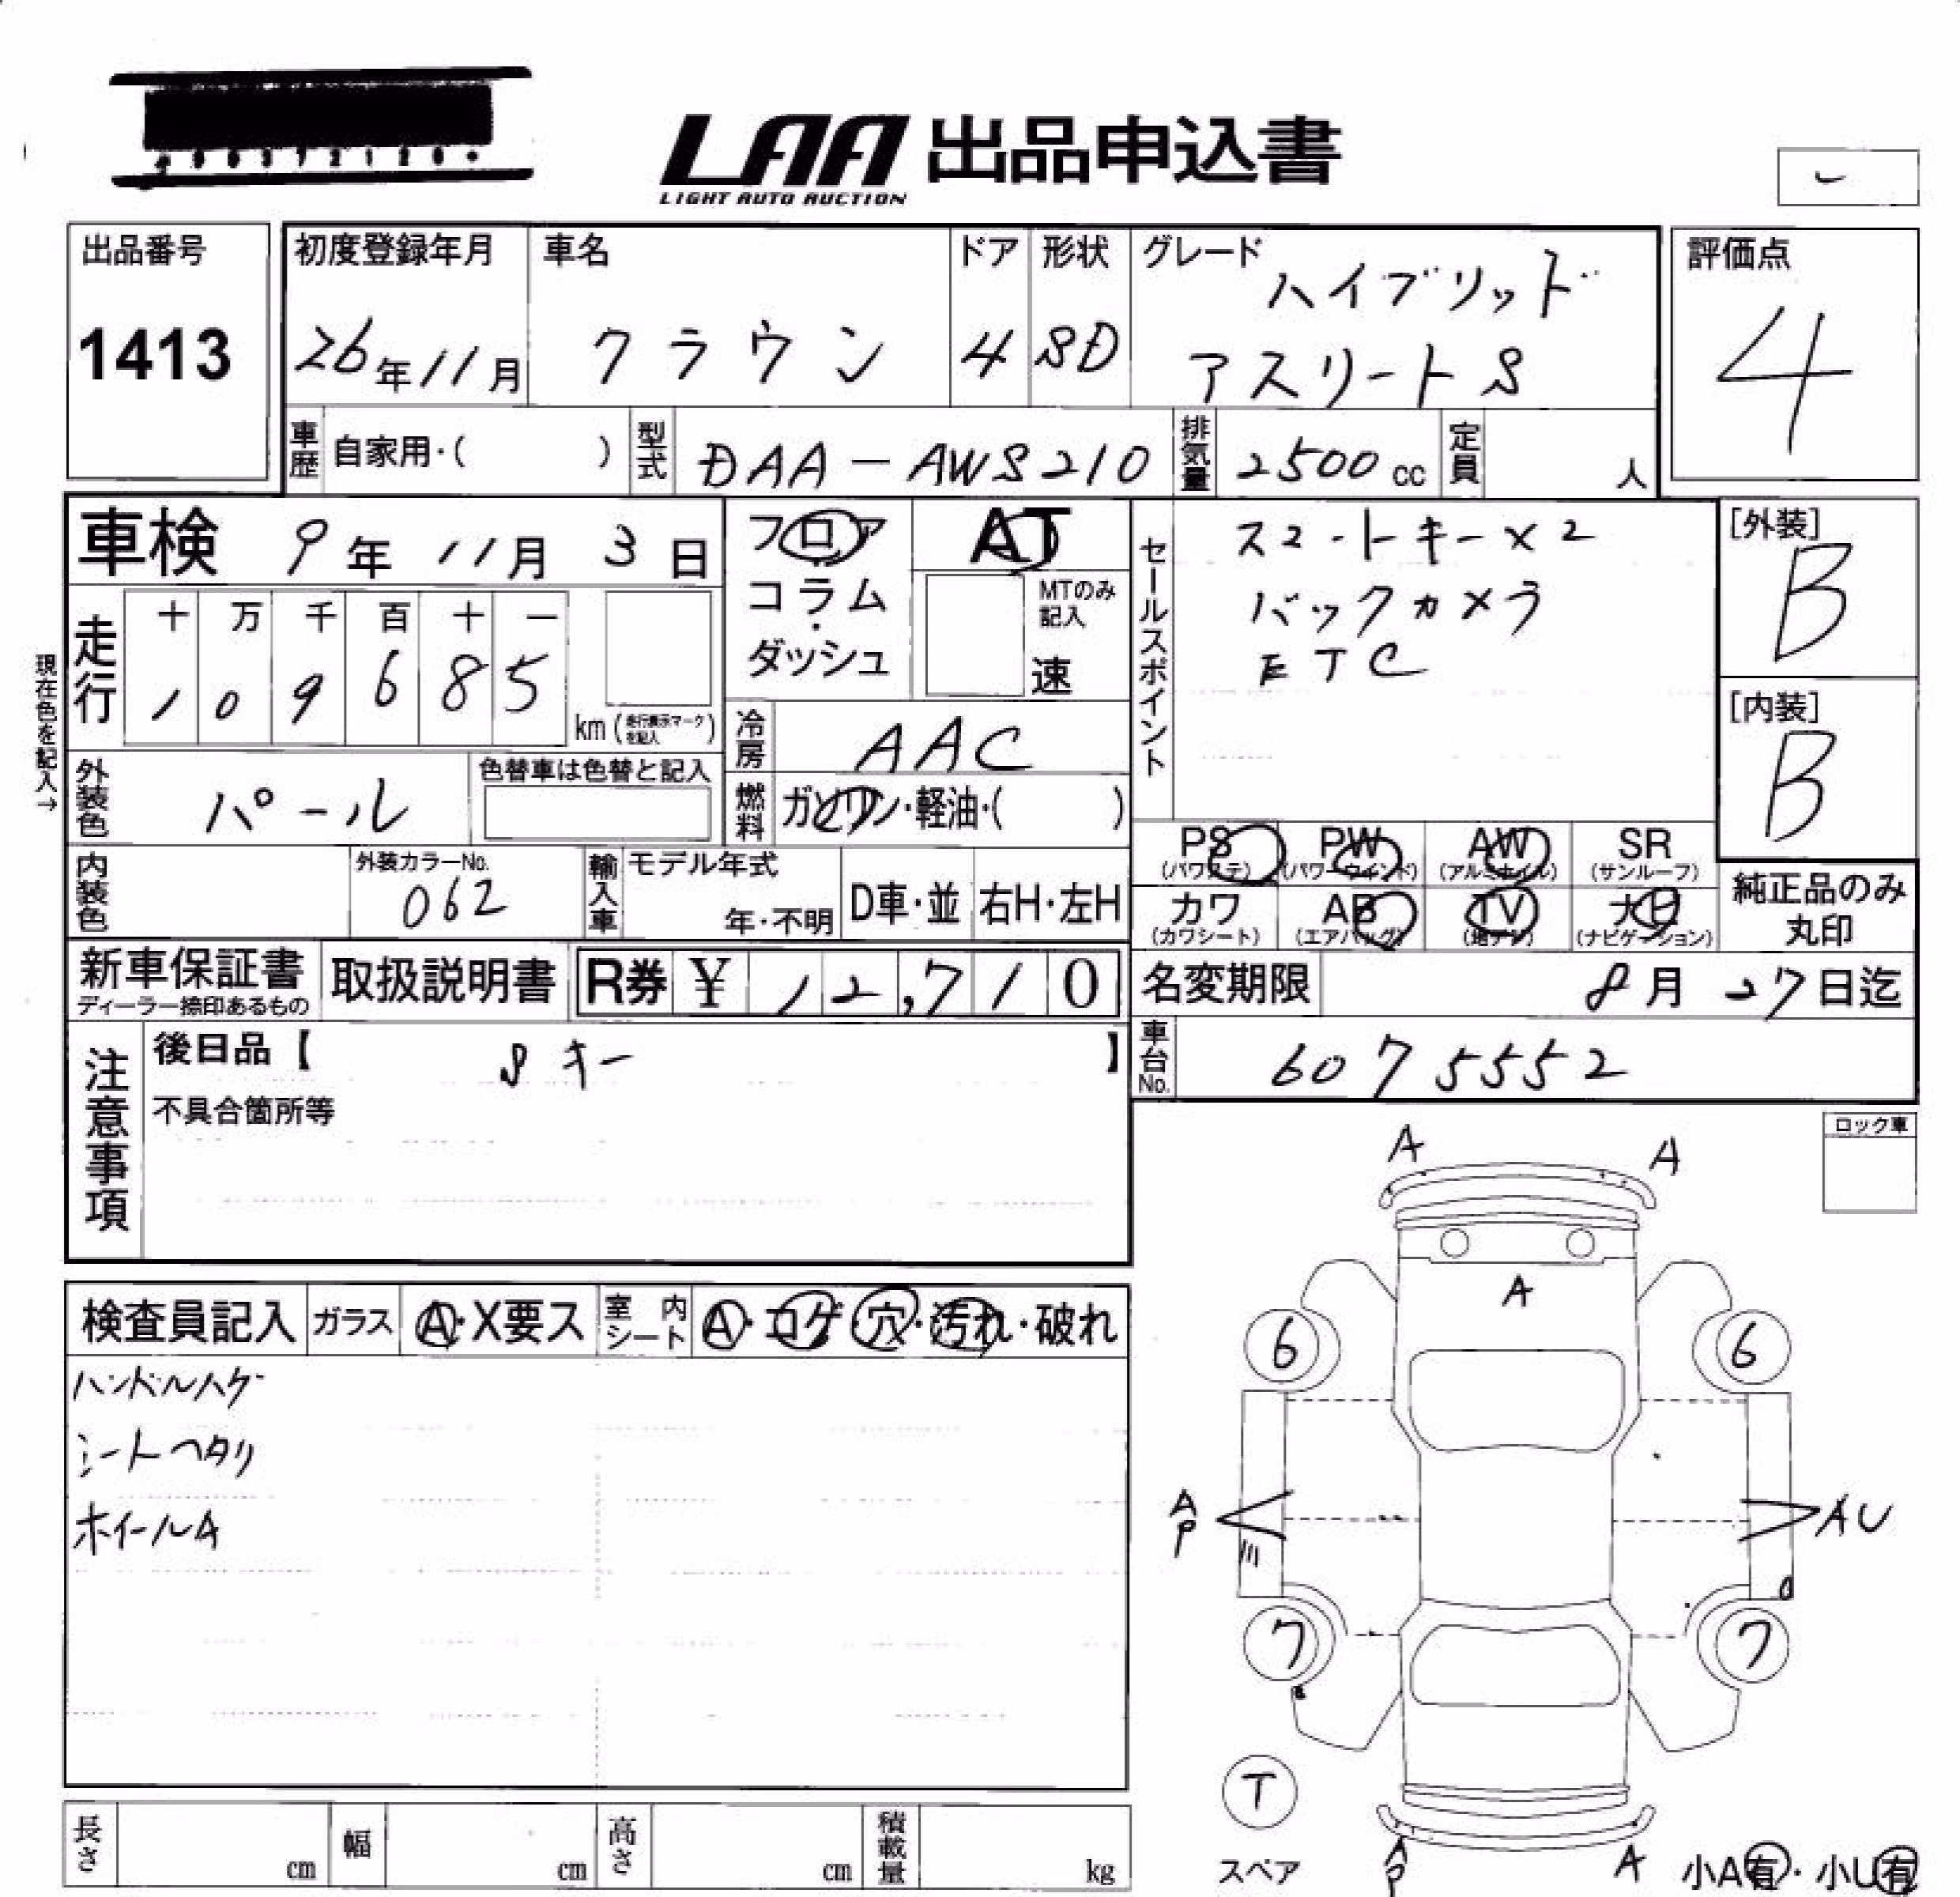 LAA 出品申込書
LIGHT AUTO AUCTION
出品番号
1413
初度登録年月
26年11月
車名
クラウン
ドア
4
形状
SD
グレード
ハイブリッド
アスリートS
評価点
4
車歴 自家用・( )
型式 DAA-AWS210
排気量 2500cc
定員 人
車検 9年 11月 3日
フロア
コラム
・
ダッシュ
AT
MTのみ記入
速
現在色を記入→
走行
十 万 千 百 十 一
1 0 9 6 8 5
km(走行表示マークを記入)
冷房 AAC
燃料 ガソリン・軽油・( )
外装色 パール
色替車は色替と記入
内装色
外装カラーNo.
062
輸入車
モデル年式
年・不明
D車・並
右H・左H
セールスポイント
スマートキー×2
バックカメラ
ETC
[外装]
B
[内装]
B
PS PW AW SR
(パワステ) (パワーウインド) (アルミホイル) (サンルーフ)
カワ AB TV ナビ
(カワシート) (エアバッグ) (地デジ) (ナビゲーション)
純正品のみ
丸印
新車保証書
ディーラー捺印あるもの
取扱説明書
R券 ¥ 12,710
名変期限 8月27日迄
車台No. 6075552
注意事項
後日品【 Sキー 】
不具合箇所等
ロック車
検査員記入 ガラス A・X要ス
室内シート A・コゲ・穴・汚れ・破れ
ハンドルハゲ
シートヘタリ
ホイールA
A A
A
6 6
A
P
AU
7 7
T
スペア
A
P
A
小A有・小U有
長さ cm
幅 cm
高さ cm
積載量 kg